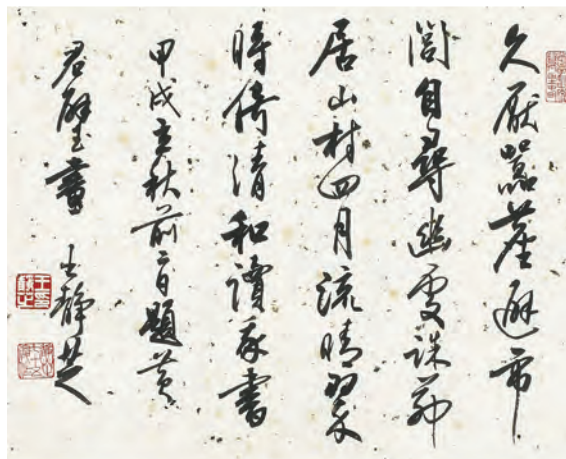 久厭囂塵避市
閭自尋幽處誅茆
居山村四月流晴翠
時倚清和讀我書
甲戌立秋前二日題黃
君璧畫 王靜芝